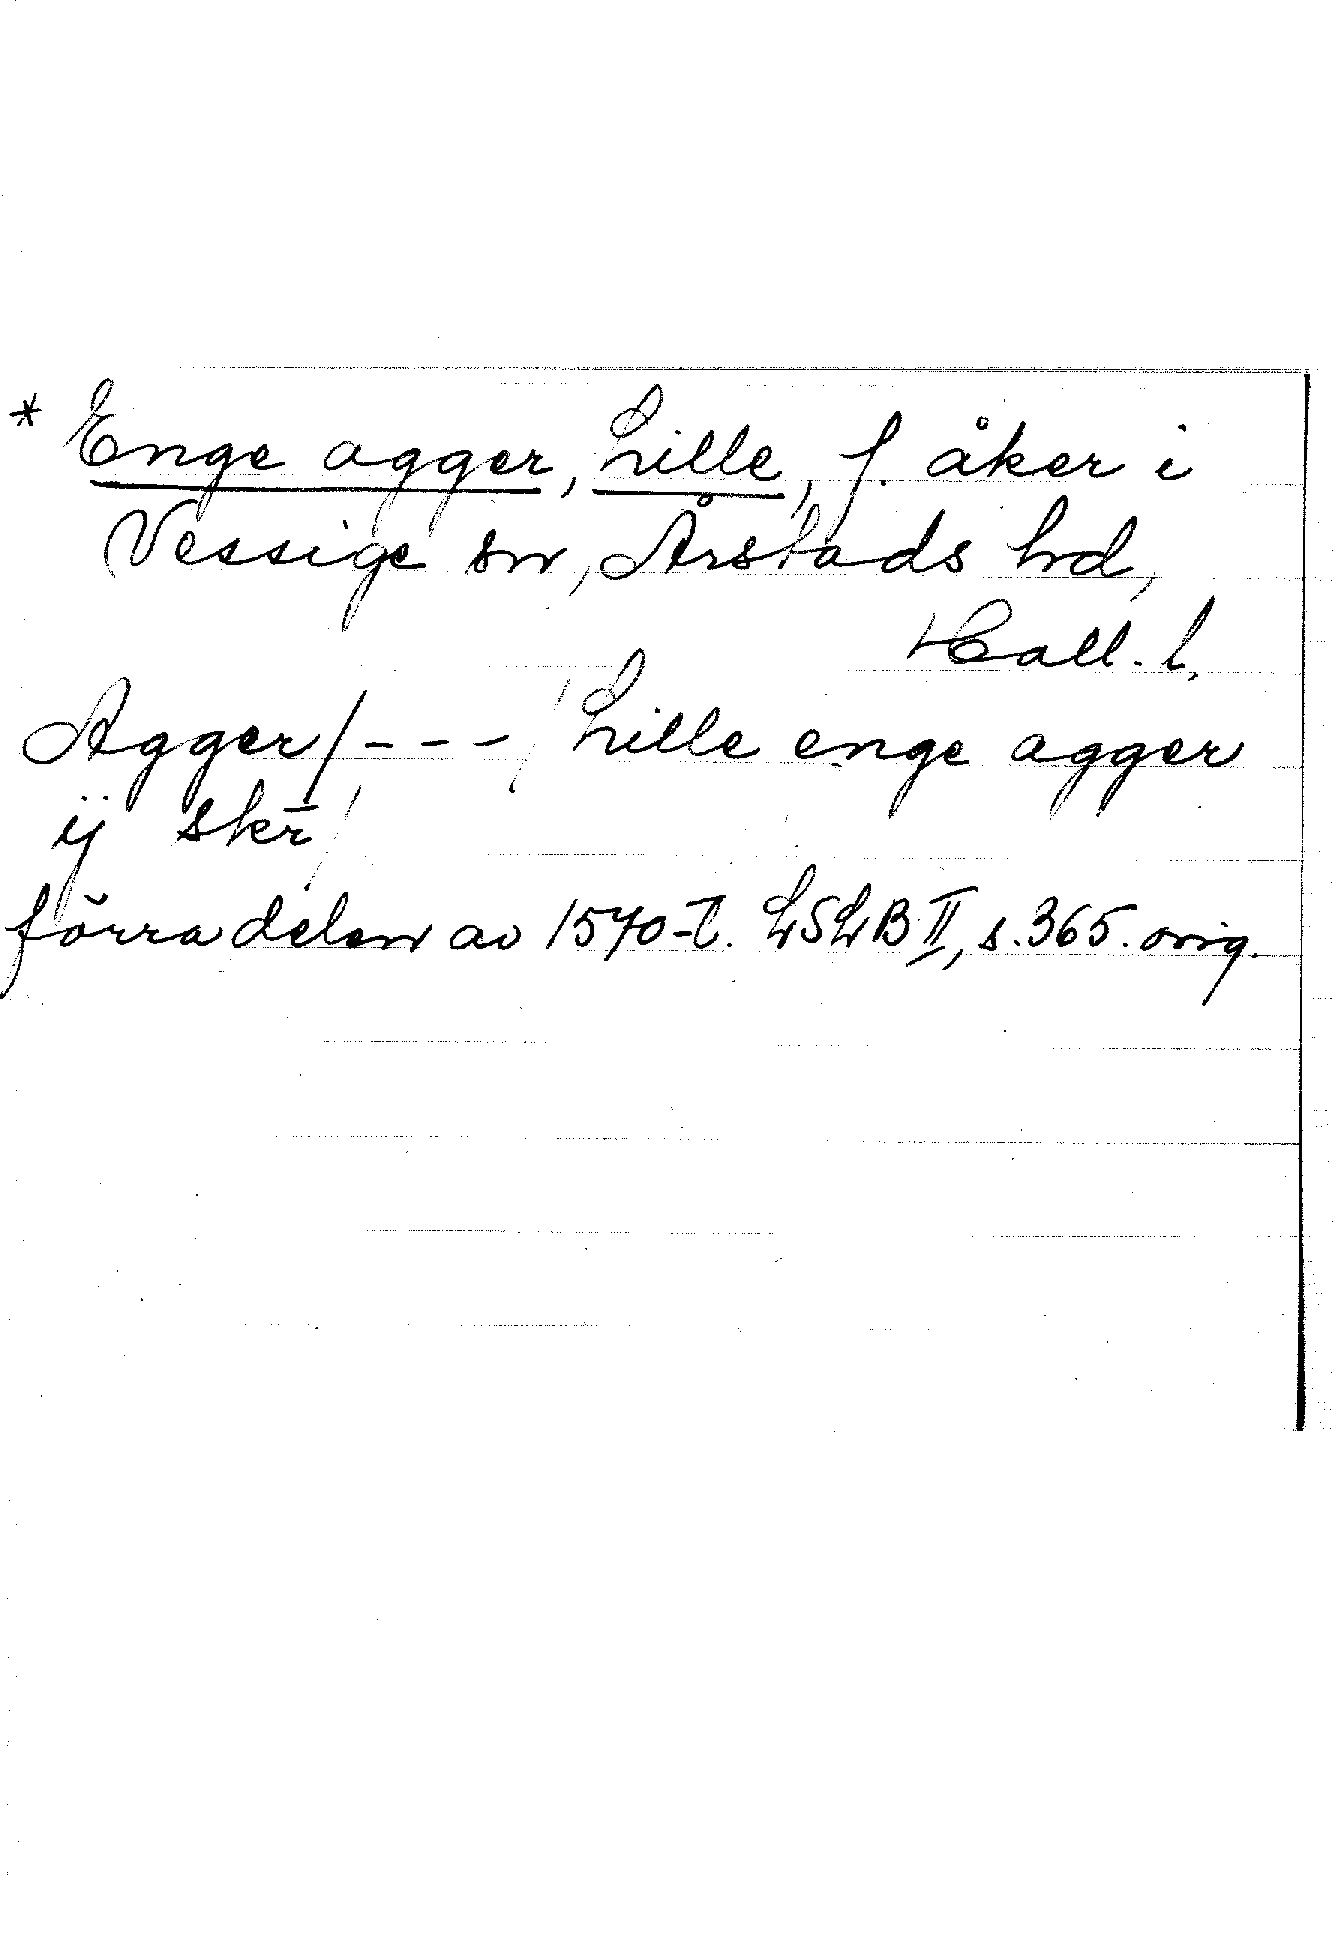 * Enge agger, Lille, f. åker i
Vessige sn, Årstads hd,
Hall. l.
Agger / - - - / Lille enge agger
ij skr̄ /
förra delen av 1570-t. LSLB II, s. 365. orig.